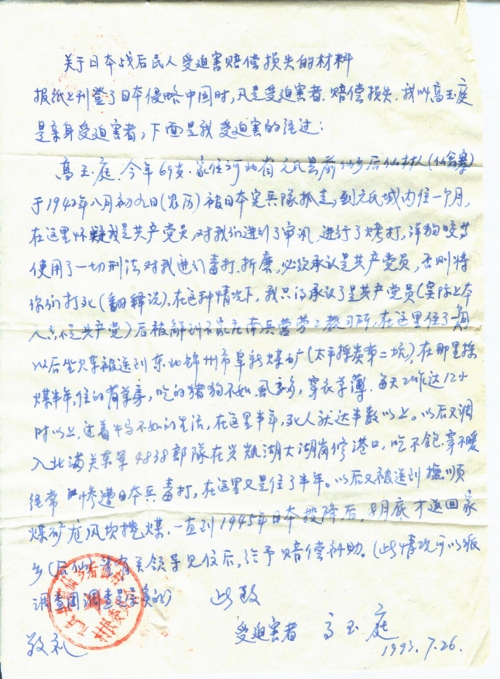 关于日本战后民人受迫害赔偿损失的材料
报纸上刊登了日本侵略中国时,凡是受迫害者.赔偿损失.我叫高玉庭
是亲身受迫害者,下面是我受迫害的经过:
高玉庭.今年69岁.家住河北省元氏县前仙乡后仙村人(仙翁寨)
于1942年八月初九日(农历)被日本宪兵隊抓走,到元氏城内住一个月,
在这里怀疑我是共产党员,对我们进行了审讯,进行了烤打,洋狗咬等
使用了一切刑法,对我进行毒打,折磨,必须承认是共产党员,否则将
你们打死(翻译说),在这种情况下,我只得承认了是共产党员(实际上本
人不是共产党)后被解到石家庄南兵营劳工教习所,在这里住了一月
以后坐火车被送到东北锦州市阜新煤矿(太平採炭第二坑),在那里採
煤半年,住的有草房,吃的猪狗不如,风多,穿衣单薄.每天工作达12小
时以上,过着牛马不如的生活,在这里半年,死人就达半数以上.以后又调
入北满关东军4838部隊在兴凯湖大湖岗修港口,吃不饱.穿不暖
经常惨遭日本兵毒打,在这里又是住了半年.以后又被送到撫順
煤矿龙凤坎挖煤.一直到1945年日本投降后.8月底才返回家
乡(后仙)请有关领导见信后,给予赔偿补助.(此情况可以派
调查团调查是实的)
此致
敬礼
受迫害者 高玉庭
1993.7.26.